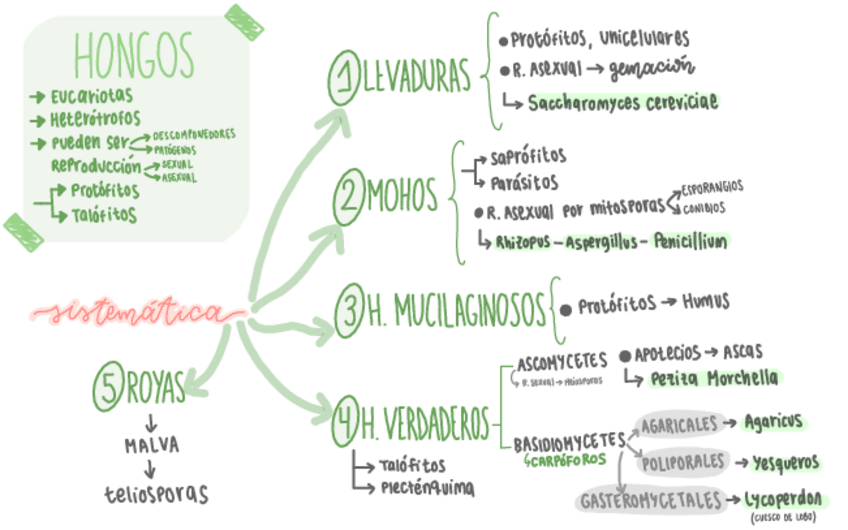 HONGOS
→ EUCARIOTAS
→ HETERÓTROFOS
→ PUEDEN SER → DESCOMPONEDORES
→ PATÓGENOS
REPRODUCCIÓN → SEXUAL
→ ASEXUAL
→ PROTÓFITOS
→ TALÓFITOS
sistemática
1 LEVADURAS
• PROTÓFITOS, UNICELULARES
• R. ASEXUAL → gemación
↳ Saccharomyces cereviciae
2 MOHOS
→ SAPRÓFITOS
→ PARÁSITOS
• R. ASEXUAL POR MITOSPORAS → ESPORANGIOS
→ CONIDIOS
↳ Rhizopus - Aspergillus - Penicillium
3 H. MUCILAGINOSOS
• PROTÓFITOS → HUMUS
4 H. VERDADEROS
→ TALÓFITOS
→ PLECTÉNQUIMA
ASCOMYCETES
↳ R. SEXUAL → MEIOSPOROS
• APOTECIOS → ASCAS
↳ Peziza Morchella
BASIDIOMYCETES
↳ CARPÓFOROS
AGARICALES → Agaricus
POLIPORALES → Yesqueros
GASTEROMYCETALES → Lycoperdon
(CUESCO DE LOBO)
5 ROYAS
↓
MALVA
↓
teliosporas